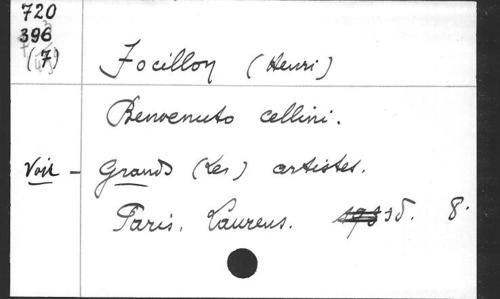 720
396
(7)
Focillon (Henri)
Benvenuto cellini.
Voir - Grands (Les) artistes.
Paris. Laurens. 8.